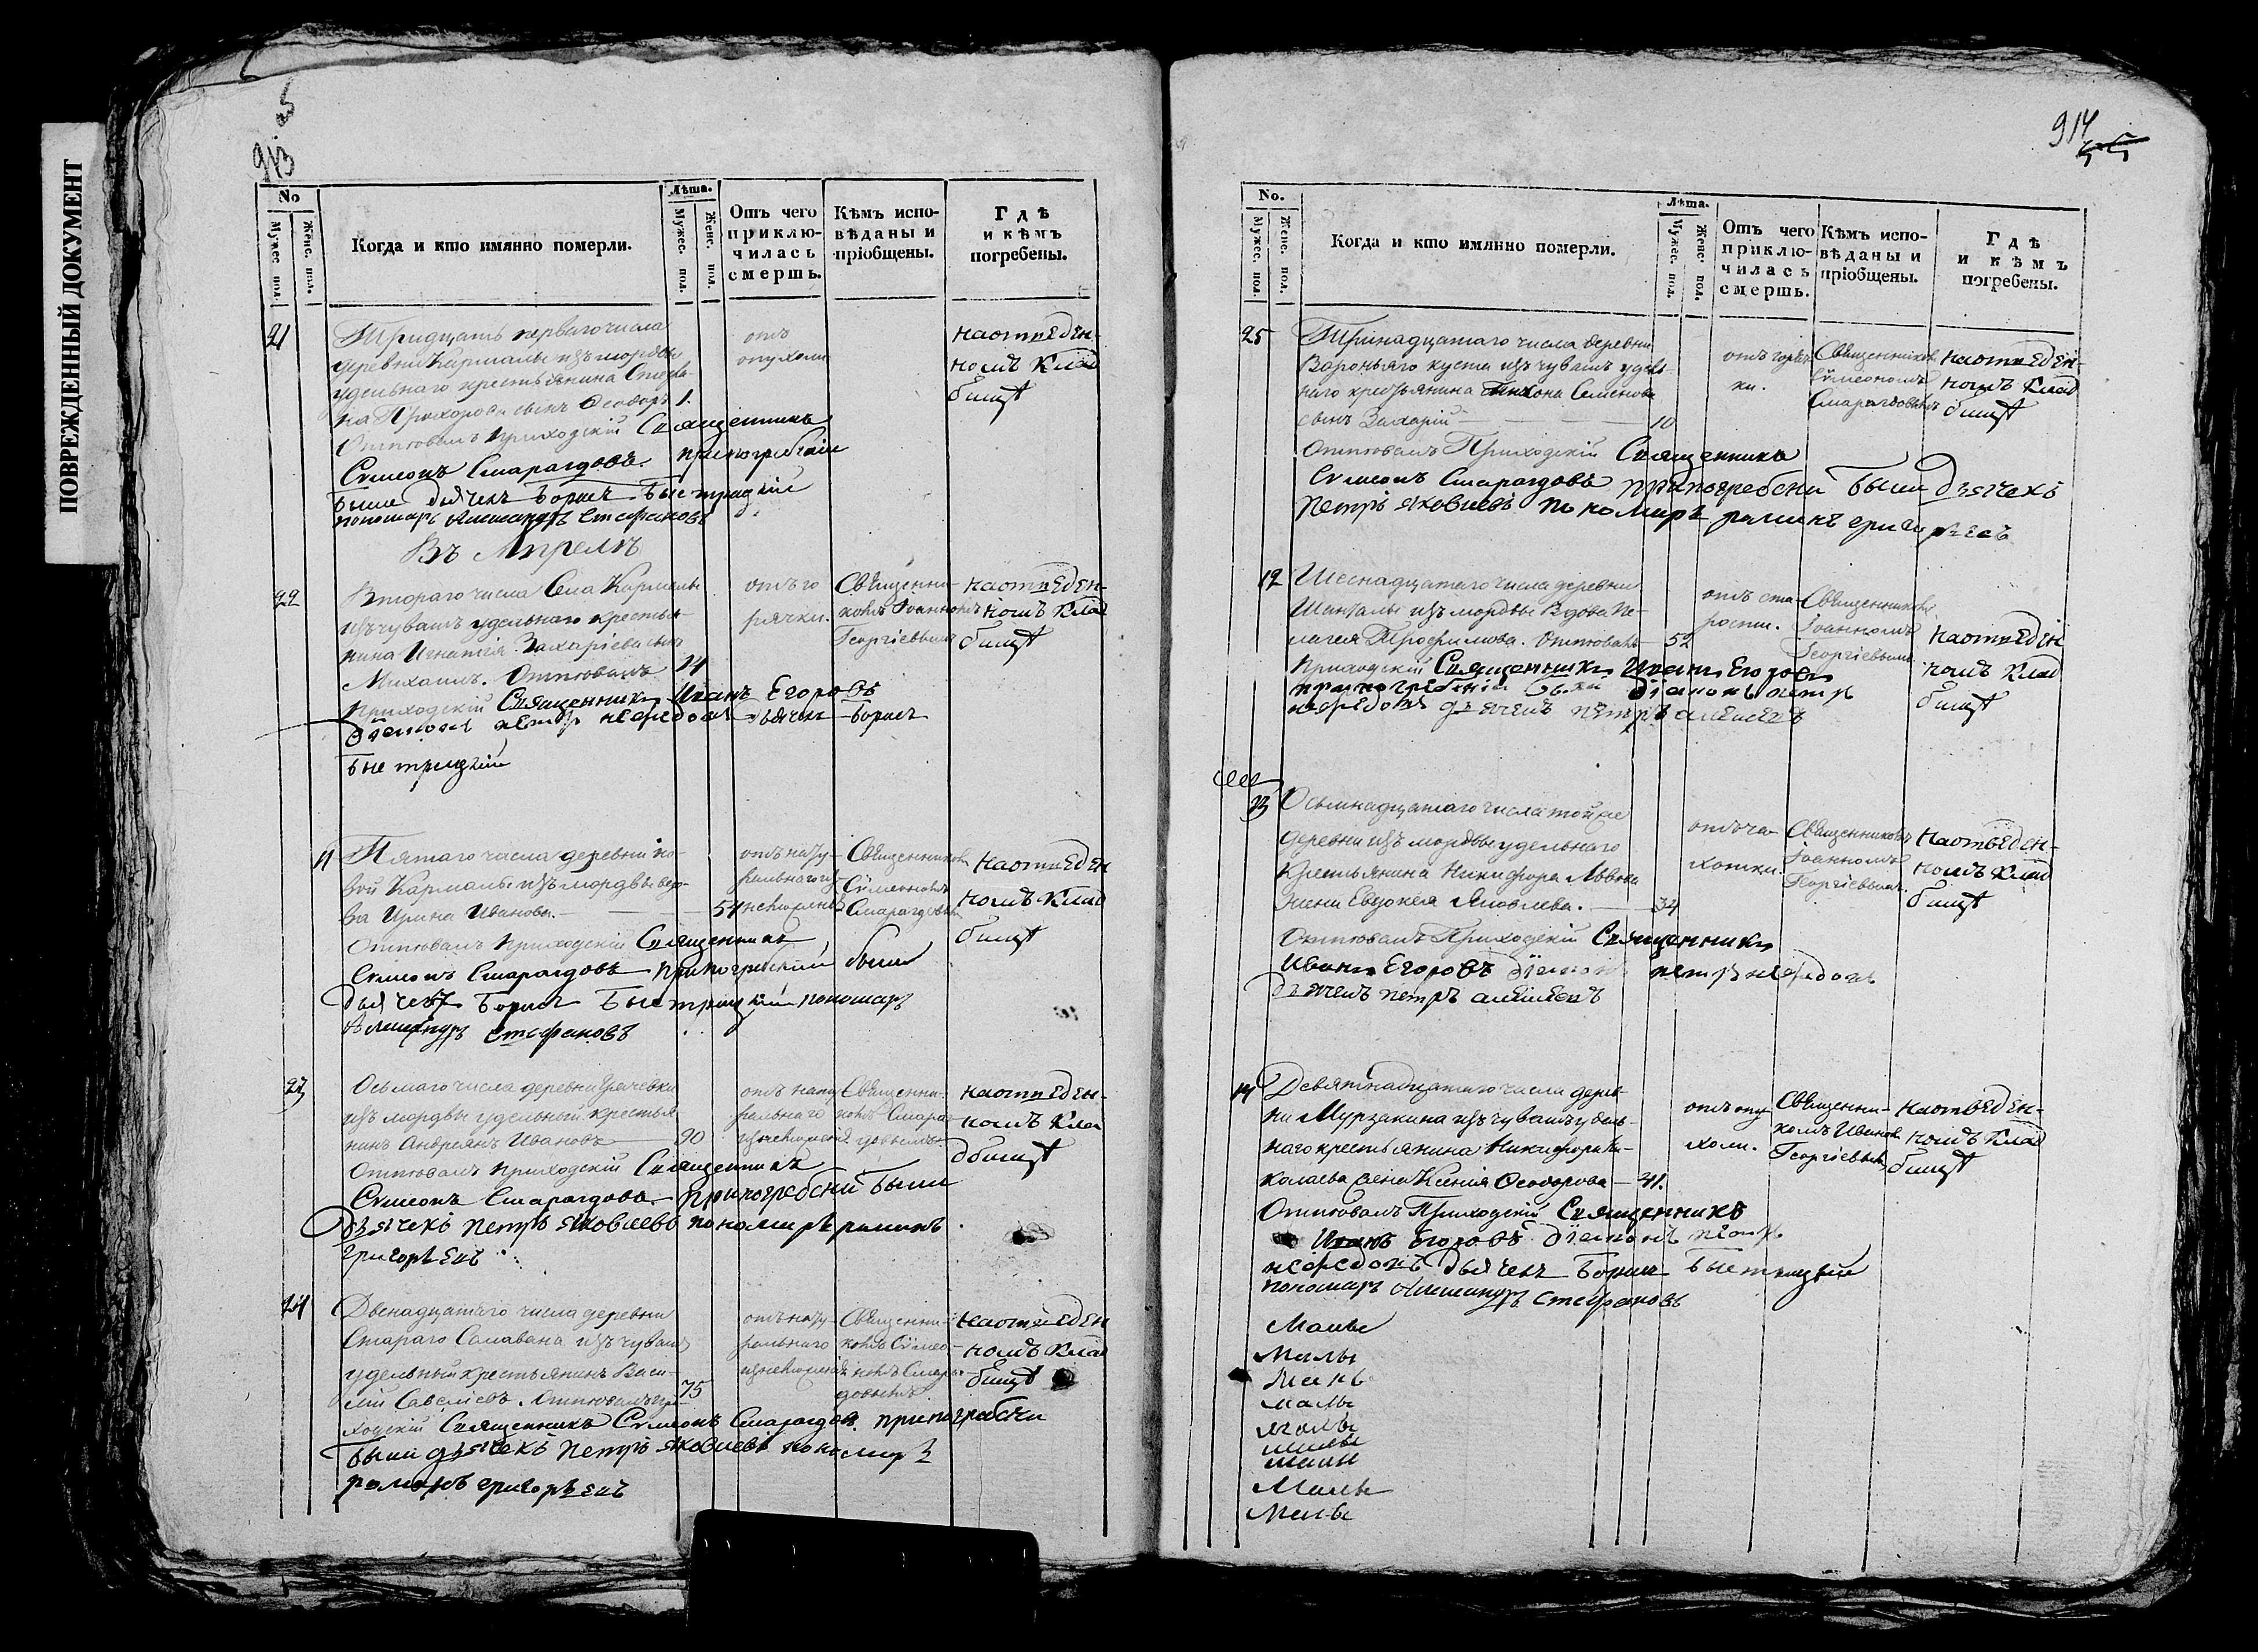 ПОВРЕЖДЕННЫЙ ДОКУМЕНТ
5
913
No
Мужес. пол.
Женс. пол.
Когда и кто имянно померли.
Лѣта.
Мужес. пол.
Женс. пол.
Отъ чего приключилась смерть.
Кѣмъ исповѣданы и пріобщены.
Гдѣ и кѣмъ погребены.
21
Тридцать перваго числа
деревни Кармалы изъ мордвы
удельнаго крестьянина Стефа-
на Прохорова сынъ Феодоръ 1.
Отпевалъ приходскій Священникъ
Симеонъ Смарагдовъ. при погребеніи
были дьячекъ Борисъ Быстрицкій
пономарь Александръ Стефановъ
отъ
опухоли
на отведен-
номъ клад
бищѣ
Въ Апрелѣ
22
Втораго числа Села Кармалы
изъ чувашъ удельнаго крестья-
нина Игнатія Захаріева сынъ
Михаилъ. Отпевалъ 24
приходскій Священникъ Иванъ Егоровъ
діаконъ петръ нефедовъ дьячекъ Борисъ
Быстрицкій
отъ го
рячки.
Священни-
комъ Іоанномъ
Георгіевымъ
на отведен-
номъ клад
бищѣ
11
Пятаго числа деревни но-
вой Кармалы изъ мордвы вдо-
ва Ирина Иванова. 54
Отпевалъ приходскій Священникъ
Симеонъ Смарагдовъ при погребеніи были
дьячекъ Борисъ Быстрицкій пономарь
Александръ Стефановъ
отъ нату-
ральнаго из-
неможенія
Священникомъ
Симеономъ
Смарагдовымъ
на отведен
номъ клад
бищѣ
23
Осьмаго числа деревни Грачевки
изъ мордвы удельный крестья
нинъ Андреянъ Ивановъ 90
Отпевалъ приходскій Священникъ
Симеонъ Смарагдовъ при погребени были
дьячекъ петръ яковлевъ пономаръ романъ
григорьевъ
отъ нату
ральнаго
изнеможенія
Священни-
комъ Смара-
гдовымъ.
на отведен-
номъ кла
дбищѣ
24
Двенадцатаго числа деревни
Стараго Саmавана изъ чувашъ
удельный крестьянинъ Васи-
лий Савельевъ. Отпевалъ при- 75
ходскій Священникъ Симеонъ Смарагдовъ. при погребени
были дьячекъ петръ яковлевъ пономаръ
романъ григорьевъ
отъ нату-
ральнаго
изнеможенія
Священни-
комъ Симео-
номъ Смараг-
довымъ
на отведен
номъ клад
бищѣ
914
No.
Мужес. пол.
Женс. пол.
Когда и кто имянно померли.
Лѣта.
Мужес. пол.
Женс. пол.
Отъ чего приключилась смерть.
Кѣмъ исповѣданы и пріобщены.
Гдѣ и кѣмъ погребены.
25
Тринадцатаго числа деревни
Вороньяго куста изъ чувашъ удель-
наго крестьянина Тихона Семенова
сынъ Захарій 10
Отпевалъ Приходскій Священникъ
Симеонъ Смарагдовъ при погребени были дьячекъ
петръ яковлевъ пономаръ романъ григорьевъ
отъ горяч-
ки.
Священникомъ
Симеономъ
Смарагдовымъ
на отведен-
номъ клад
бищѣ
12
Шеснадцатаго числа деревни
Шенталы изъ мордвы Вдова Пе-
лагея Трофимова. Отпевалъ 52
приходскій Священникъ Иванъ Егоровъ
при погребеніи были діаконъ петръ
нефедовъ дьячекъ петръ алексеевъ
отъ ста-
рости.
Священникомъ
Іоанномъ
Георгіевымъ
на отведен
номъ клад
бищѣ
13
Осьмнадцатаго числа той же
деревни изъ мордвы удельнаго
крестьянина Никифора Львова
жена Евдокея Яковлева. 34
Отпевалъ Приходскій Священникъ
Иванъ Егоровъ діаконъ петръ нефедовъ
дьячекъ петръ алексеевъ
отъ ча-
хотки.
Священникомъ
Іоанномъ
Георгіевымъ.
на отведен-
номъ клад
бищѣ
14
Девятнадцатаго числа дерев-
ни Мурзакина изъ чувашъ удель-
наго крестьянина Никифора Ни-
колаева жена Ксенія Феодорова 41.
Отпевалъ Приходскій Священникъ
Иванъ Егоровъ діаконъ петръ
нефедовъ дьячекъ Борисъ Быстрицкій
пономарь Александръ Стефановъ
отъ опу
холи.
Священни-
комъ Иваномъ
Георгіевымъ
на отведен-
номъ клад
бищѣ